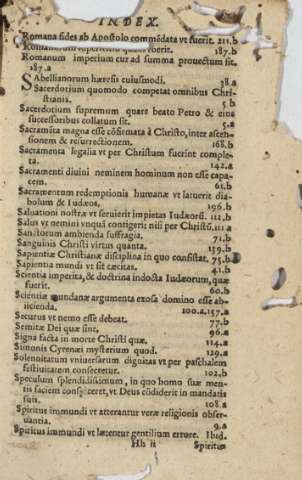 INDEX.
Romana fides ab Apostolo commēdata vt fuerit. 211.b
187.b
Romanum imperium cur ad summa prouectum sit.
187.a
Sabellianorum hæresis cuiusmodi. 38.a
Sacerdotium quomodo competat omnibus Chri-
stianis. 5.b
Sacerdotium supremum quare beato Petro & eius
successoribus collatum sit. 5.a
Sacramēta magna esse cōsirmata à Christo, inter ascen-
sionem & resurrectionem. 168.b
Sacramenta legalia vt per Christum fuerint comple-
ta. 142.a
Sacramenti diuini neminem hominum non esse capa-
cem. 61.b
Sacramentum redemptionis humanæ vt latuerit dia-
bolum & Iudæos. 196.b
Saluationi nostræ vt seruierit impietas Iudæorū. 111.b
Salus vt nemini vnquā contigerit nisi per Christū. 111.a
Sanctorum ambienda suffragia. 71.b
Sanguinis Christi virtus quanta. 159.b
Sapientiæ Christianæ disciplina in quo consistat. 75.b
Sapientia mundi vt sit cæcitas. 41.b
Scientia imperita, & doctrina indocta Iudæorum, quæ
fuerit. 60.b
Scientiæ mundanæ argumenta exosa domino esse ab-
iicienda. 100.a.157.a
Securus vt nemo esse debeat. 77.b
Semitæ Dei quæ sint. 96.a
Signa facta in morte Christi quæ. 114.a
Simonis Cyrenæi mysterium quod. 129.a
Solennitatum vniuersarum dignitas vt per paschalem
festiuitatem consecretur. 102.b
Speculum splendidissimum, in quo homo suæ men-
tis faciem conspiceret, vt Deus cōdiderit in mandatis
suis. 108.a
Spiritus immundi vt atterantur veræ religionis obser-
uantia. 9.a
Spiritus immundi vt lætentur gentilium errore. Ibid.
Hh ii Spiritus